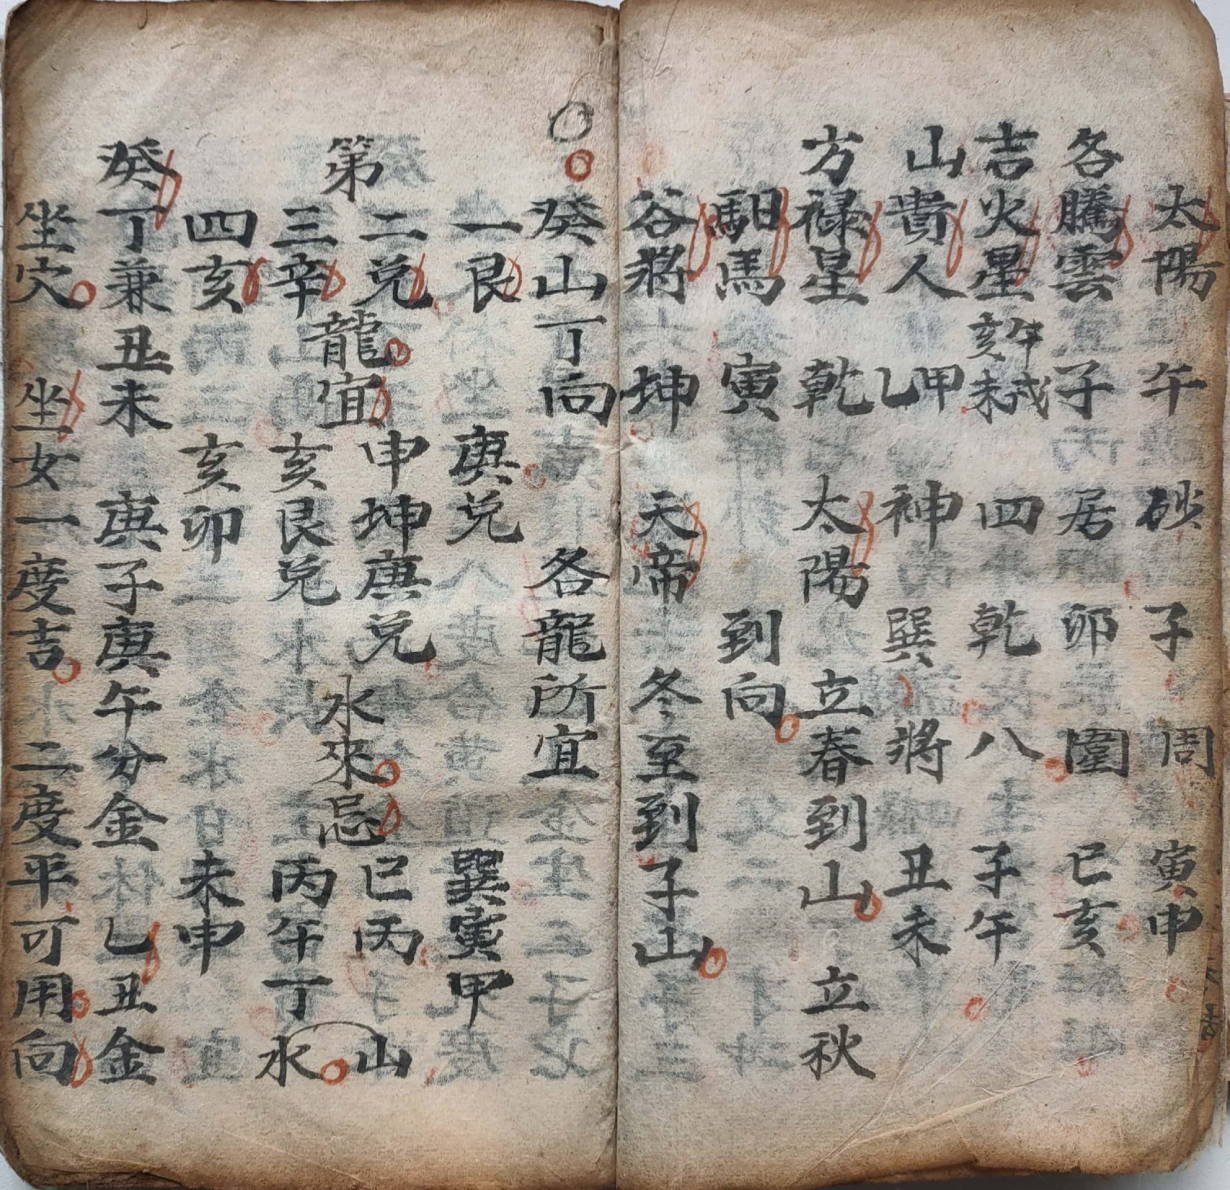 太陽 午 砂 子 周 寅申
各騰雲 子 居 卯 圍 巳亥
吉火星 午戌亥未 四 乾 八 子午
山貴人 甲乙 神 巽 將 丑未
方禄星 乾 太陽 立春到山 立秋
馹馬 寅 到向
谷將 坤 天帝 冬至到子山
癸山丁向 各龍所宜
一艮 庚兑 巽寅甲
二兑 申坤庚兑 巳丙
第 龍宜 水來忌 山
三辛 亥艮兑 丙午丁水
四亥 亥卯 未申
癸丁兼丑未 庚子庚午分金 乙丑金
坐穴 坐女一度吉 二度平可用向